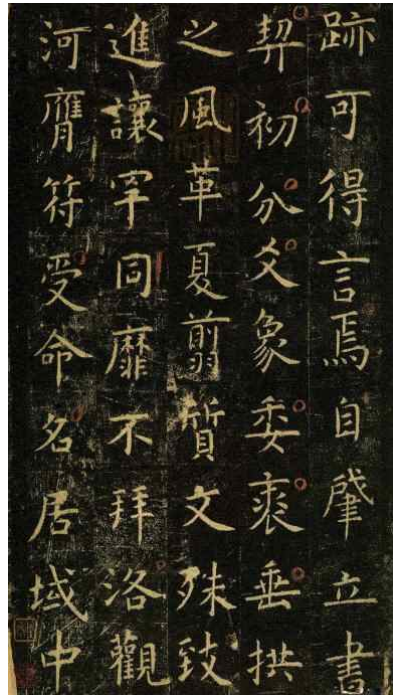 跡可得言焉自肈立書
契初分爻象委裘垂拱
之風革夏翦質文殊致
進讓罕同靡不拜洛觀
河膺符受命名居域中